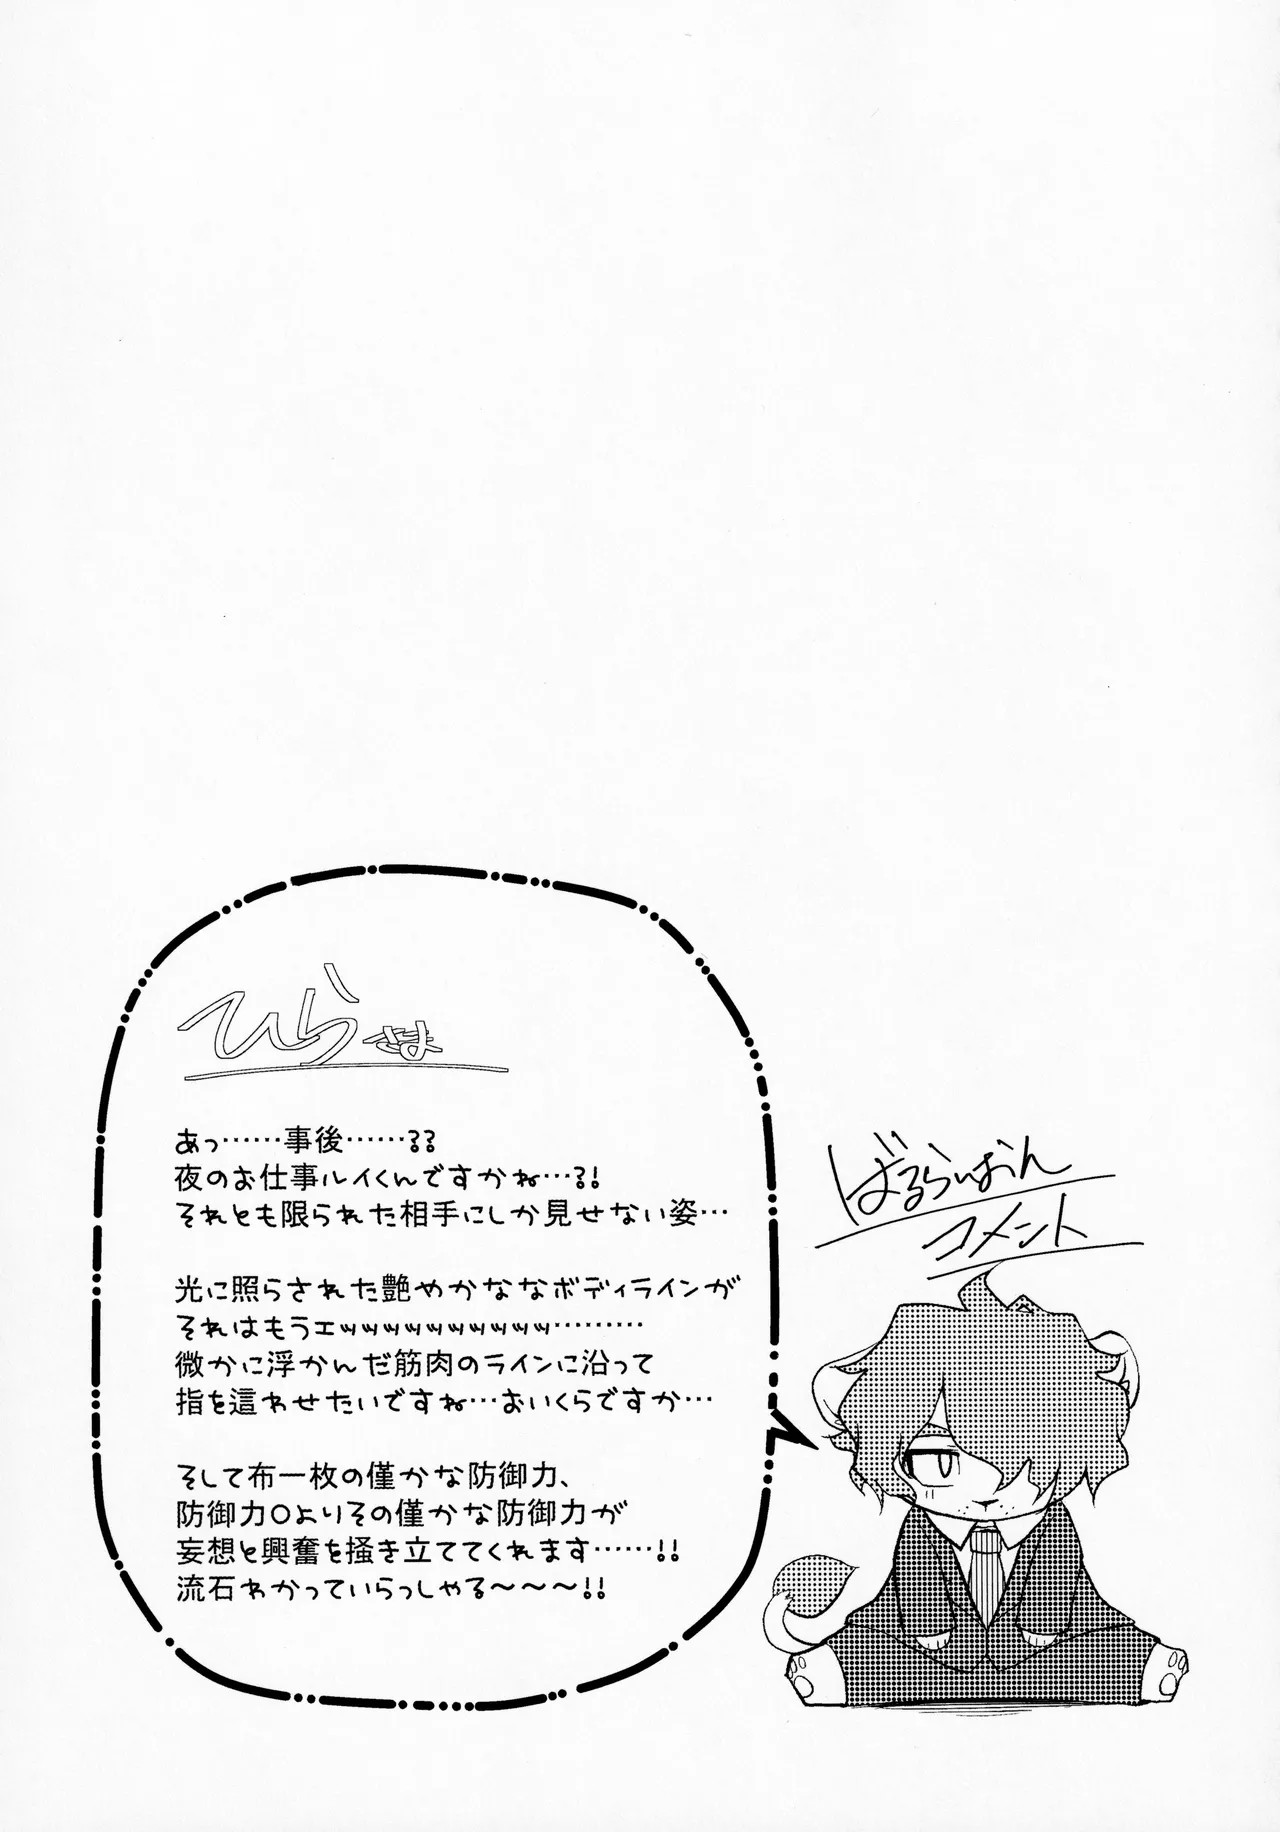 ひらさま
あっ……事後……??
夜のお仕事ルイくんですかね…?!
それとも限られた相手にしか見せない姿…
光に照らされた艶やかななボディラインが
それはもうェwwwwwwwwww………
微かに浮かんだ筋肉のラインに沿って
指を這わせたいですね…おいくらですか…
そして布一枚の僅かな防御力、
防御力0よりその僅かな防御力が
妄想と興奮を掻き立ててくれます……!!
流石わかっていらっしゃる〜〜〜!!
ばるらいおん
コメント